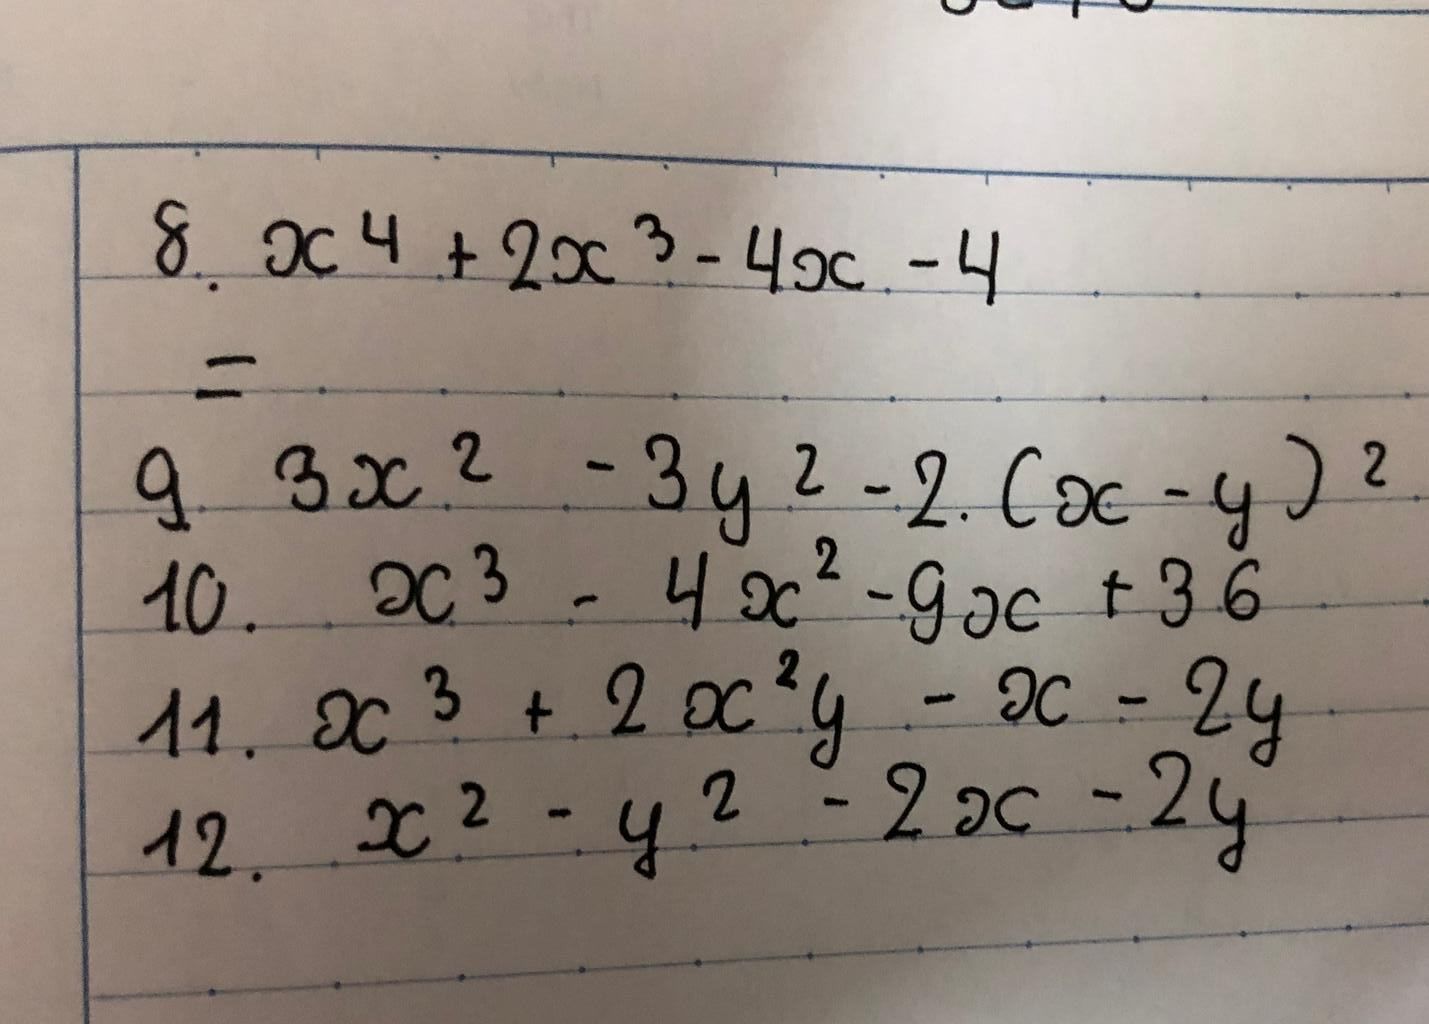 8. x⁴ + 2x³ - 4x - 4
=
9. 3x² - 3y² - 2.(x - y)²
10. x³ - 4x² - 9x + 36
11. x³ + 2x²y - x - 2y
12. x² - y² - 2x - 2y